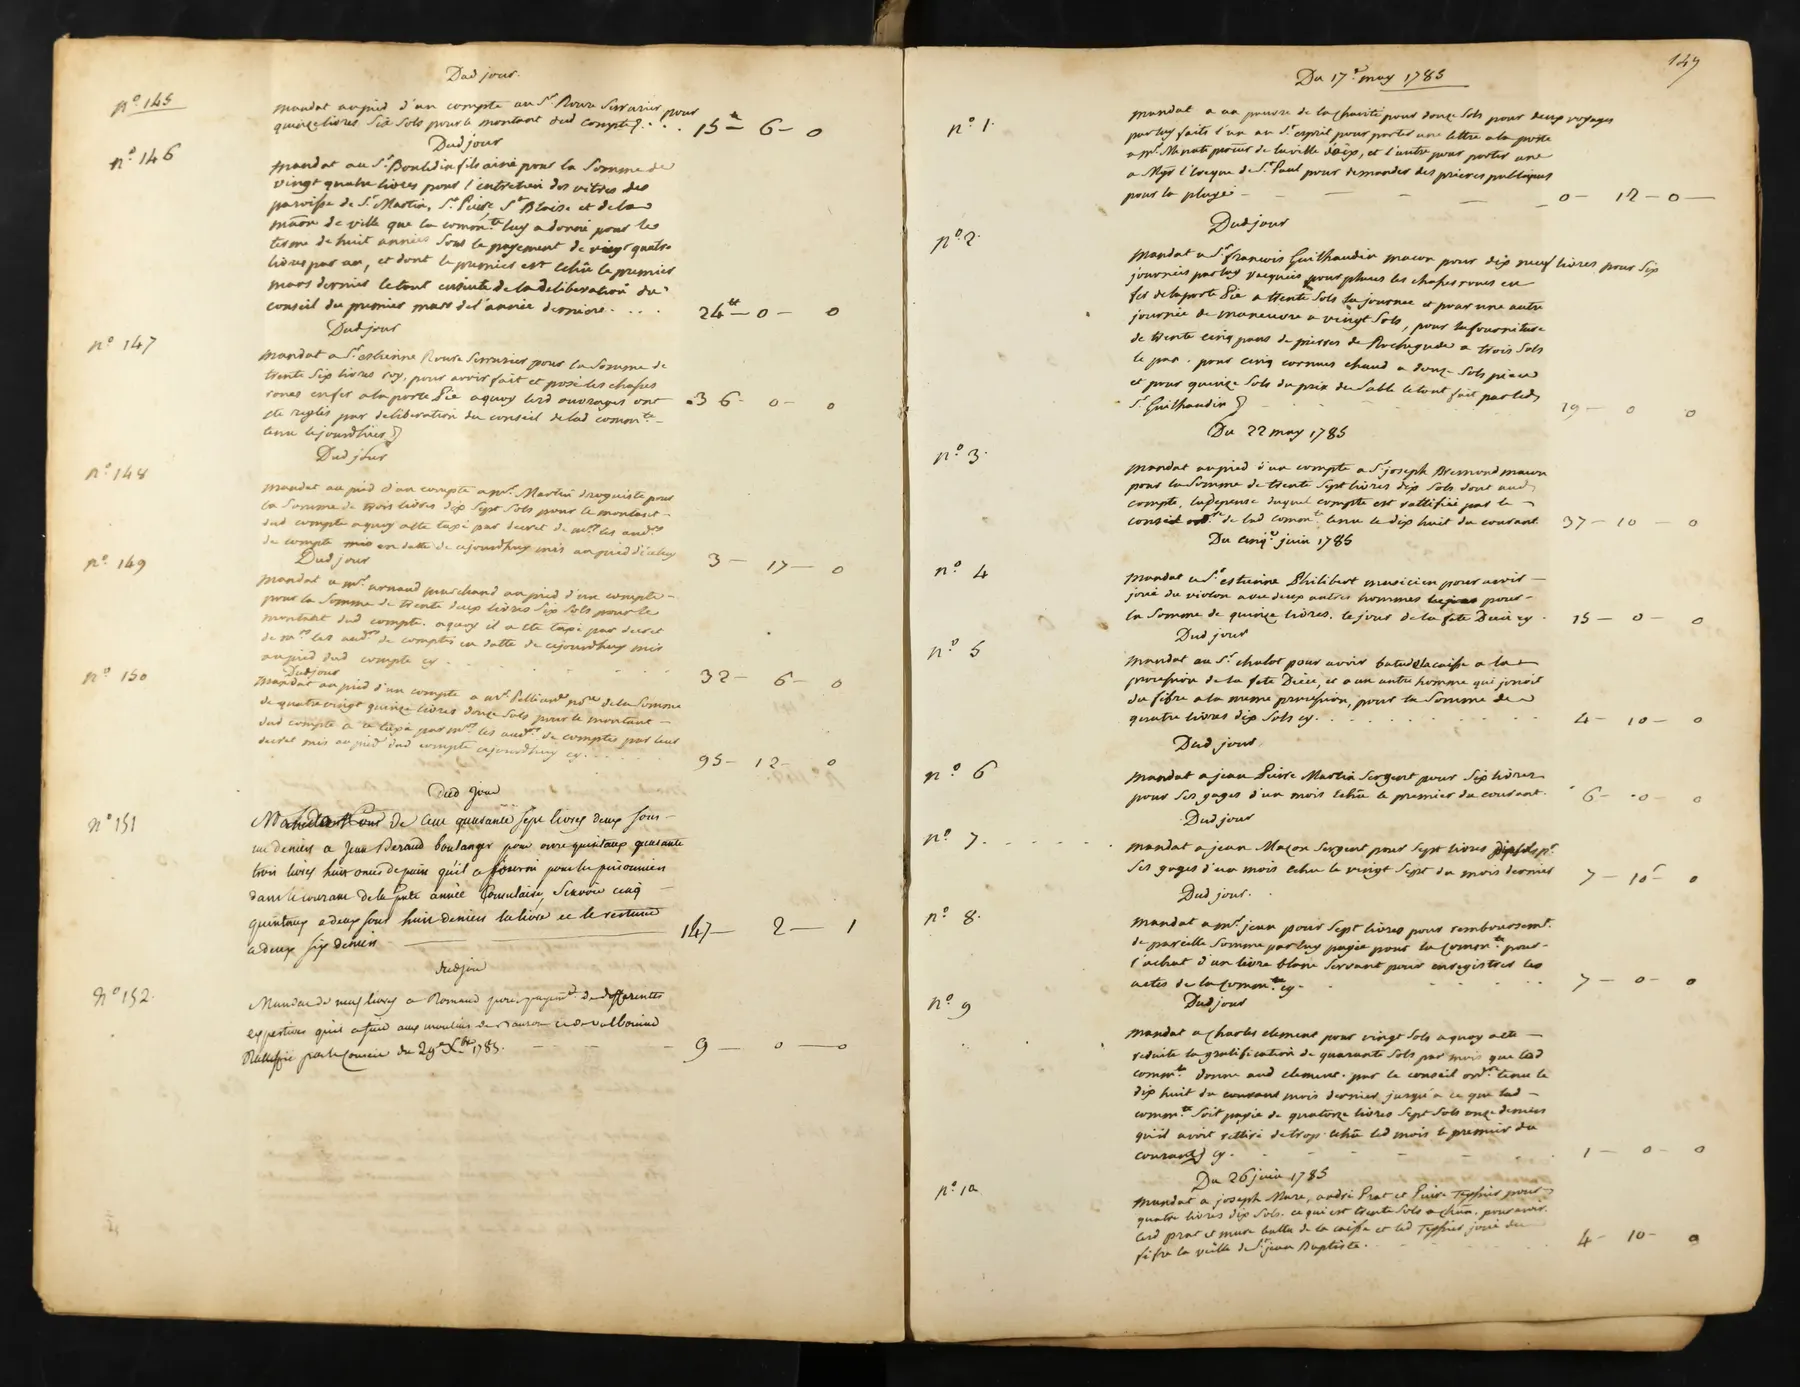 Dud jour.
n.º 145
mandat au pied d'un compte au S.r Roure Serrurier pour
quinze livres Six Sols pour le montant dud compte . . . 15 tt — 6 — 0
Dud jour
n.º 146
mandat au S.r fils ainé pour la Somme de
vingt quatre livres pour l'entretien des vitres des
paroisse de S.t Martin, S.t Pierre S.t Blaise et de la
maôn de ville que la comon.té luy a donné pour le
terme de huit années Sous le payement de vingt quatre
livres par an, et dont le premier est echû le premier
mars dernier le tout ensuite de la deliberation du
conseil du premier mars de l'année derniere . . . . 24 tt — 0 — 0
Dud jour
n.º 147
mandat a S.r estienne Roure Serrurier pour la Somme de
trente Six livres pour avoir fait et posé les chasses
roues en fer a la porte Pie a quoy lesd ouvrages ont
été reglés par deliberation du conseil de lad comon.té —
tenu le jourdhuy 36 — 0 — 0
Dud jour
n.º 148
mandat au pied d'un compte a m.r Martin droguiste pour
la Somme de trois livres dix Sept Sols pour le montant —
dud compte a quoy a été taxé par decret de m.rs les aud.rs
de compte mis en datte de cejourdhuy mis au pied d'iceluy 3 — 17 — 0
Dud jour
n.º 149
mandat a m.r arnaud marchand au pied d'un compte —
pour la Somme de trente deux livres Six Sols pour le
montant dud compte. a quoy il a été taxé par decret
de m.rs les aud.rs de comptes en datte de cejourdhuy mis
au pied dud compte cy . . . . 32 — 6 — 0
Dud jour
n.º 150
mandat au pied d'un compte a m.r no.re de la Somme
de quatre vingt quinze livres douze Sols pour le montant —
dud compte a été taxé par m.rs les aud.rs de compte par leur
decret mis au pied dud compte cejourdhuy cy . . . . . 95 — 12 — 0
Dud jour
n.º 151
Mandat de Cent quarante Sept livres deux Sous —
un denier a Jean boulanger pour onze quintaux quarante
trois livres huit onces de pain qu'il a fourni pour les prisonniers
dans le courant de la p.nte année Consulaire, Scavoir cinq —
quintaux a deux Sous huit deniers la livre et le restant
a deux six deniers — 147 — 2 — 1
dud jour
N.º 152.
Mandat de neuf livres a Romand juré payem.t de differentes
expertises qu'il a fait aux moulins de et de
Ratiffié par le Conseil du 29.e X.bre 1783. — 9 — 0 — 0
149
Du 17.e may 1785
n.º 1.
mandat a un pauvre de la charité pour douze Sols pour deux voyages
par luy faits l'un au S.t esprit pour porter une lettre a la poste
a m.r procur de la ville d'aix, et l'autre pour porter une
a Mgr l'eveque de S.t Paul pour demander des prieres publiques
pour la pluye — 0 — 12 — 0 —
Dud jour
n.º 2.
mandat a S.r francois Guilhaudin macon pour dix neuf livres pour Six
journées par luy vacquées pour placer les chasses roues en
fer de la porte Pie a trente Sols la journée et pour une autre
journée de manoeuvre a vingt Sols, pour la fourniture
de trente cinq pans de pierres de Rochegude a trois Sols
le pan. pour cinq cornues chaud a douze Sols piece
et pour quinze Sols du prix du Sable le tout fait par led
S.r Guilhaudin 19 — 0 0
Du 22 may 1785
n.º 3.
mandat au pied d'un compte a S.r joseph Bremond macon
pour la Somme de trente Sept livres dix Sols dont aud
compte, la depense duquel compte est rattifiée par le —
conseil ord.re de lad comon.té tenu le dix huit du courant 37 — 10 — 0
Du cinq.e juin 1785
n.º 4
mandat a S.r estienne Philibert musicien pour avoir —
joué du violon avec deux autres hommes pour —
la Somme de quinze livres. le jour de la fete Dieu cy. 15 — 0 — 0
Dud jour
n.º 5
mandat au S.r chalot pour avoir batu de la caisse a la
procession de la fete Dieu, et a un autre homme qui jouoit
du fifre a la meme procession, pour la Somme de
quatre livres dix Sols cy. . . . . . . . . . . 4 — 10 — 0
Dud jour
n.º 6
mandat a jean Pierre Martin Sergent pour Six livres
pour Ses gages d'un mois echû le premier du courant. 6 — 0 — 0
Dud jour
n.º 7. . . . . . .
mandat a jean Maçon Sergent pour Sept livres dix sols p.r
Ses gages d'un mois echu le vingt Sept du mois dernier 7 — 10 — 0
Dud jour.
n.º 8.
mandat a m.r jean pour Sept livres pour remboursem.t
de pareille Somme par luy payée pour la comon.té pour —
l'achat d'un livre blanc Servant pour enregistrer les
actes de la comon.té cy. . . . . 7 — 0 — 0
Dud jour
n.º 9
mandat a Charles clement pour vingt Sols a quoy a été —
reduite la gratification de quarante Sols par mois que lad
comon.té donne aud clement. par le conseil ord.re tenu le
dix huit du courant mois dernier jusqu'a ce que lad —
comon.té Soit payée de quatorze livres Sept Sols onze deniers
qu'il avoit retiré de trop. echû led mois le premier du
courant cy. 1 — 0 — 0
Du 26 juin 1785
n.º 10
mandat a joseph Mure, andré Prat et Pierre Tessier pour
quatre livres dix Sols. ce qui est trente Sols a chûn. pour avoir
lesd prat et mure battu de la caisse et led Tessier joué du
fifre la veille de S.t jean Baptiste. 4 — 10 — 0